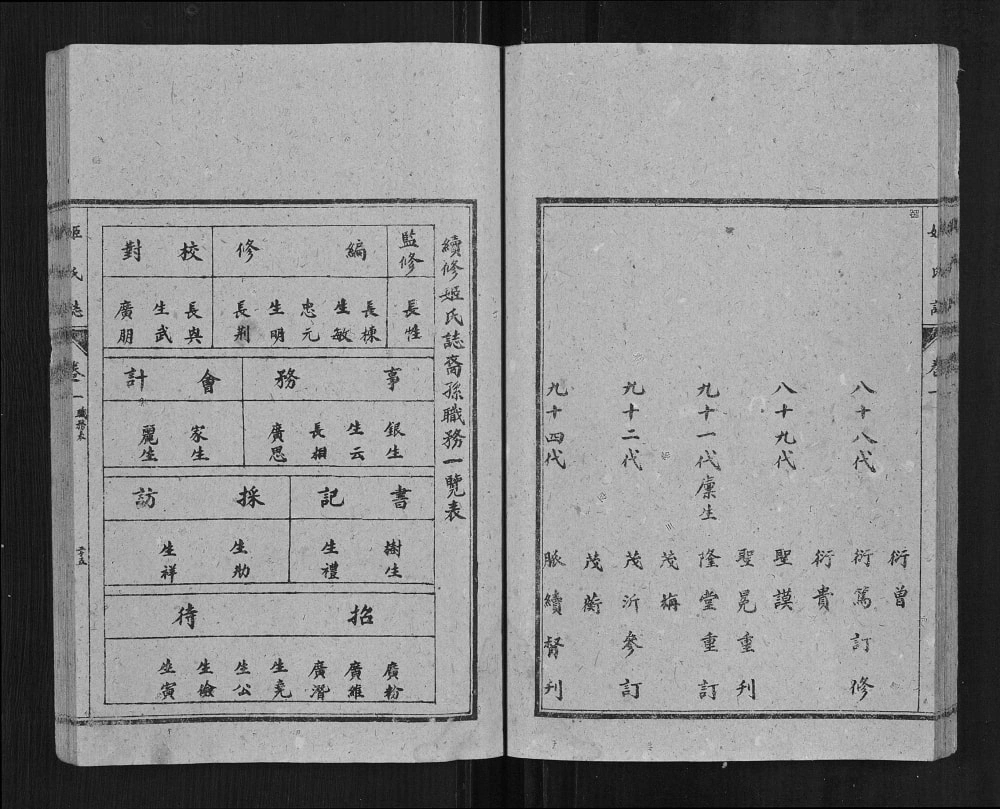 衍曾
八十八代 衍篤訂修
衍貴
八十九代 聖謨
聖晃重刊
九十一代廩生 隆堂重訂
茂梅
九十二代 茂沂參訂
茂蘅
九十四代 脈續督刊
續修姬氏誌裔孫職務一覽表
監修
長性
編修
長棟
生敏
忠元
生明
長荆
校對
長與
生武
廣朋
事務
銀生
生云
長相
廣思
會計
家生
麗生
書記
樹生
生禮
採訪
生勛
生祥
招待
廣粉
廣維
廣潛
生堯
生公
生儉
生寅
姬氏誌
卷一
職務表
二十五